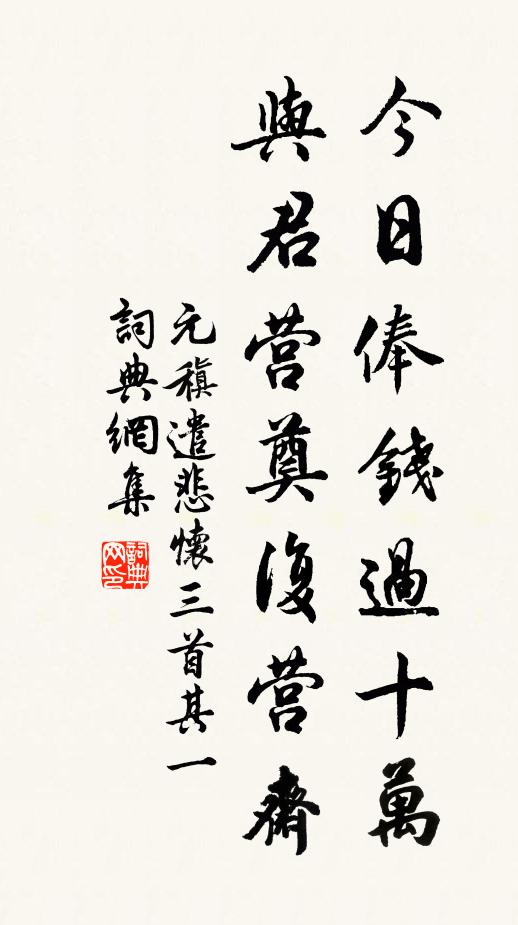 今日俸錢過十萬
與君营奠復营齋
元稹遣悲懷三首其一
詞典網集
詞典网印